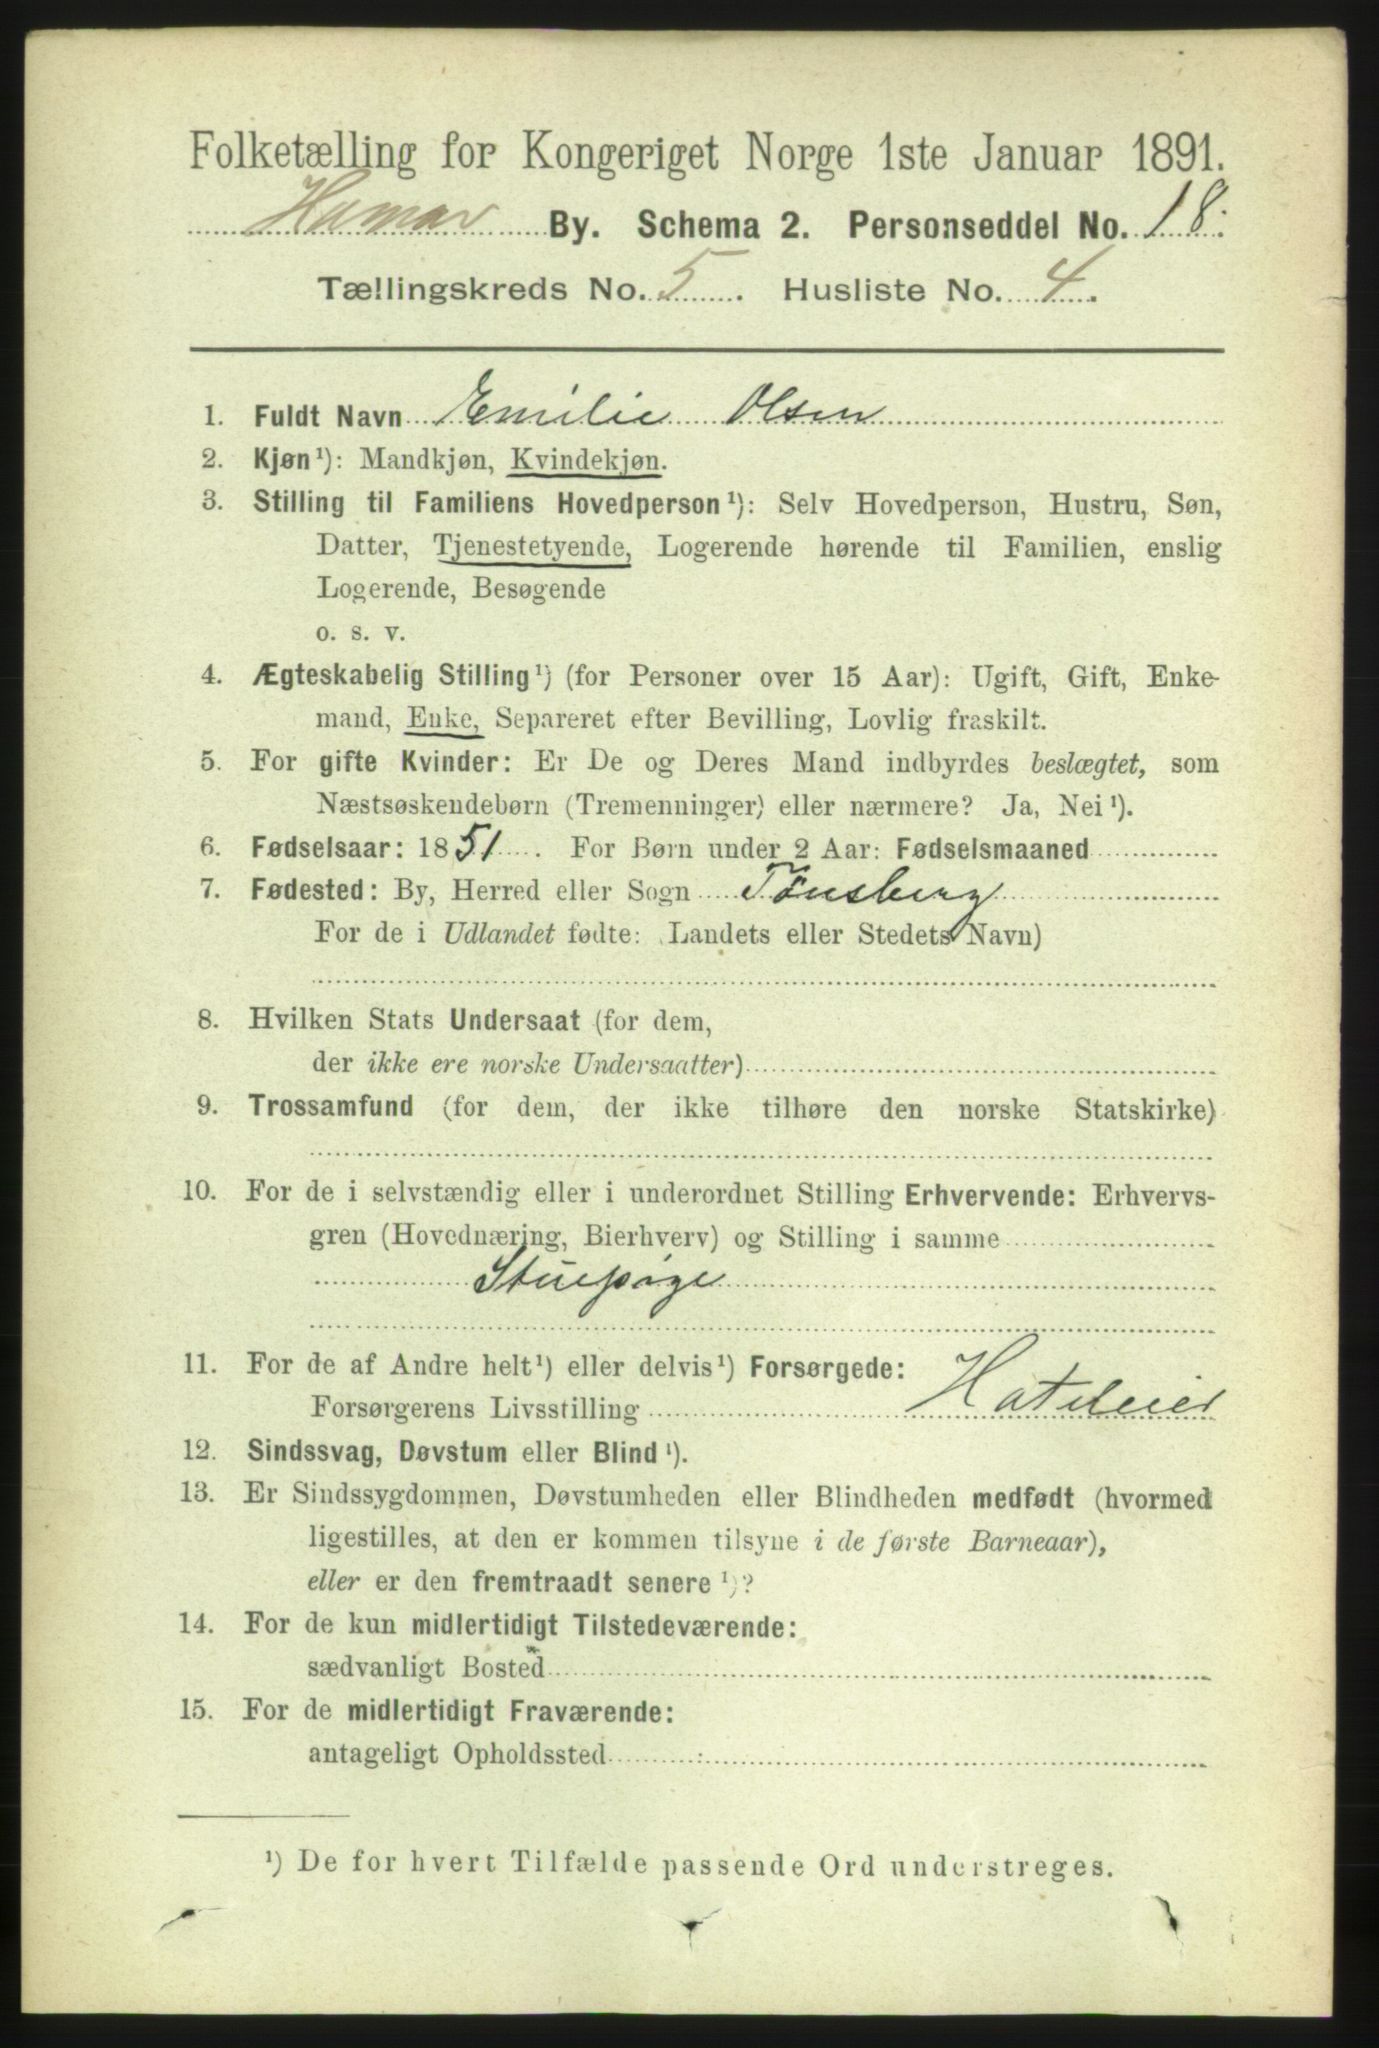 Folketælling for Kongeriget Norge 1ste Januar 1891.
Hamar By. Schema 2. Personseddel No. 18.
Tællingskreds No. 5. Husliste No. 4.
1. Fuldt Navn Emilie Olsen
2. Kjøn¹): Mandkjøn, Kvindekjøn.
3. Stilling til Familiens Hovedperson¹): Selv Hovedperson, Hustru, Søn,
Datter, Tjenestetyende, Logerende hørende til Familien, enslig
Logerende, Besøgende
o. s. v.
4. Ægteskabelig Stilling¹) (for Personer over 15 Aar): Ugift, Gift, Enke-
mand, Enke, Separeret efter Bevilling, Lovlig fraskilt.
5. For gifte Kvinder: Er De og Deres Mand indbyrdes beslægtet, som
Næstsøskendebørn (Tremenninger) eller nærmere? Ja, Nei¹).
6. Fødselsaar: 1851. For Børn under 2 Aar: Fødselsmaaned
7. Fødested: By, Herred eller Sogn Tønsberg
For de i Udlandet fødte: Landets eller Stedets Navn)
8. Hvilken Stats Undersaat (for dem,
der ikke ere norske Undersaatter)
9. Trossamfund (for dem, der ikke tilhøre den norske Statskirke)
10. For de i selvstændig eller i underordnet Stilling Erhvervende: Erhvervs-
gren (Hovednæring, Bierhverv) og Stilling i samme
Stuepige
11. For de af Andre helt¹) eller delvis¹) Forsørgede:
Forsørgerens Livsstilling
12. Sindssvag, Døvstum eller Blind¹).
13. Er Sindssygdommen, Døvstumheden eller Blindheden medfødt (hvormed
ligestilles, at den er kommen tilsyne i de første Barneaar),
eller er den fremtraadt senere¹)?
14. For de kun midlertidigt Tilstedeværende:
sædvanligt Bosted
15. For de midlertidigt Fraværende:
antageligt Opholdssted
¹) De for hvert Tilfælde passende Ord understreges.